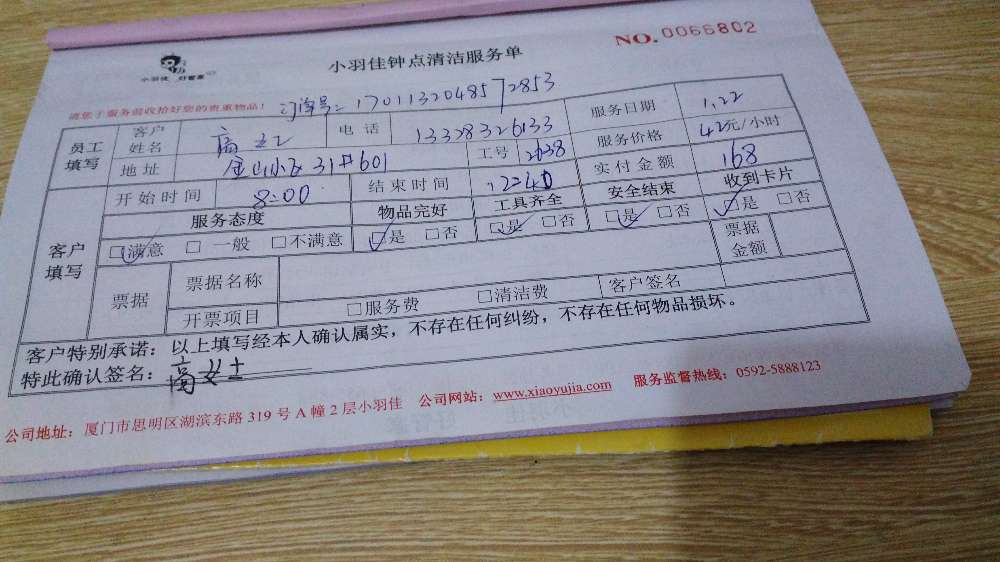 小羽佳 好管家
小羽佳钟点清洁服务单
NO. 0066802
请您于服务前收拾好您的贵重物品!
订单号: 1701132048572853
员工填写
客户姓名 高女士 电话 13328326133 服务日期 1.22
地址 金山小区31#601 工号 2638 服务价格 42元/小时
开始时间 8:00 结束时间 12:00 实付金额 168
客户填写
服务态度 物品完好 工具齐全 安全结束 收到卡片
☑满意 □一般 □不满意 ☑是 □否 ☑是 □否 ☑是 □否 ☑是 □否
票据 票据名称 票据金额
开票项目 □服务费 □清洁费 客户签名
客户特别承诺:以上填写经本人确认属实,不存在任何纠纷,不存在任何物品损坏。
特此确认签名:高女士
公司地址:厦门市思明区湖滨东路319号A幢2层小羽佳 公司网站:www.xiaoyujia.com 服务监督热线:0592-5888123